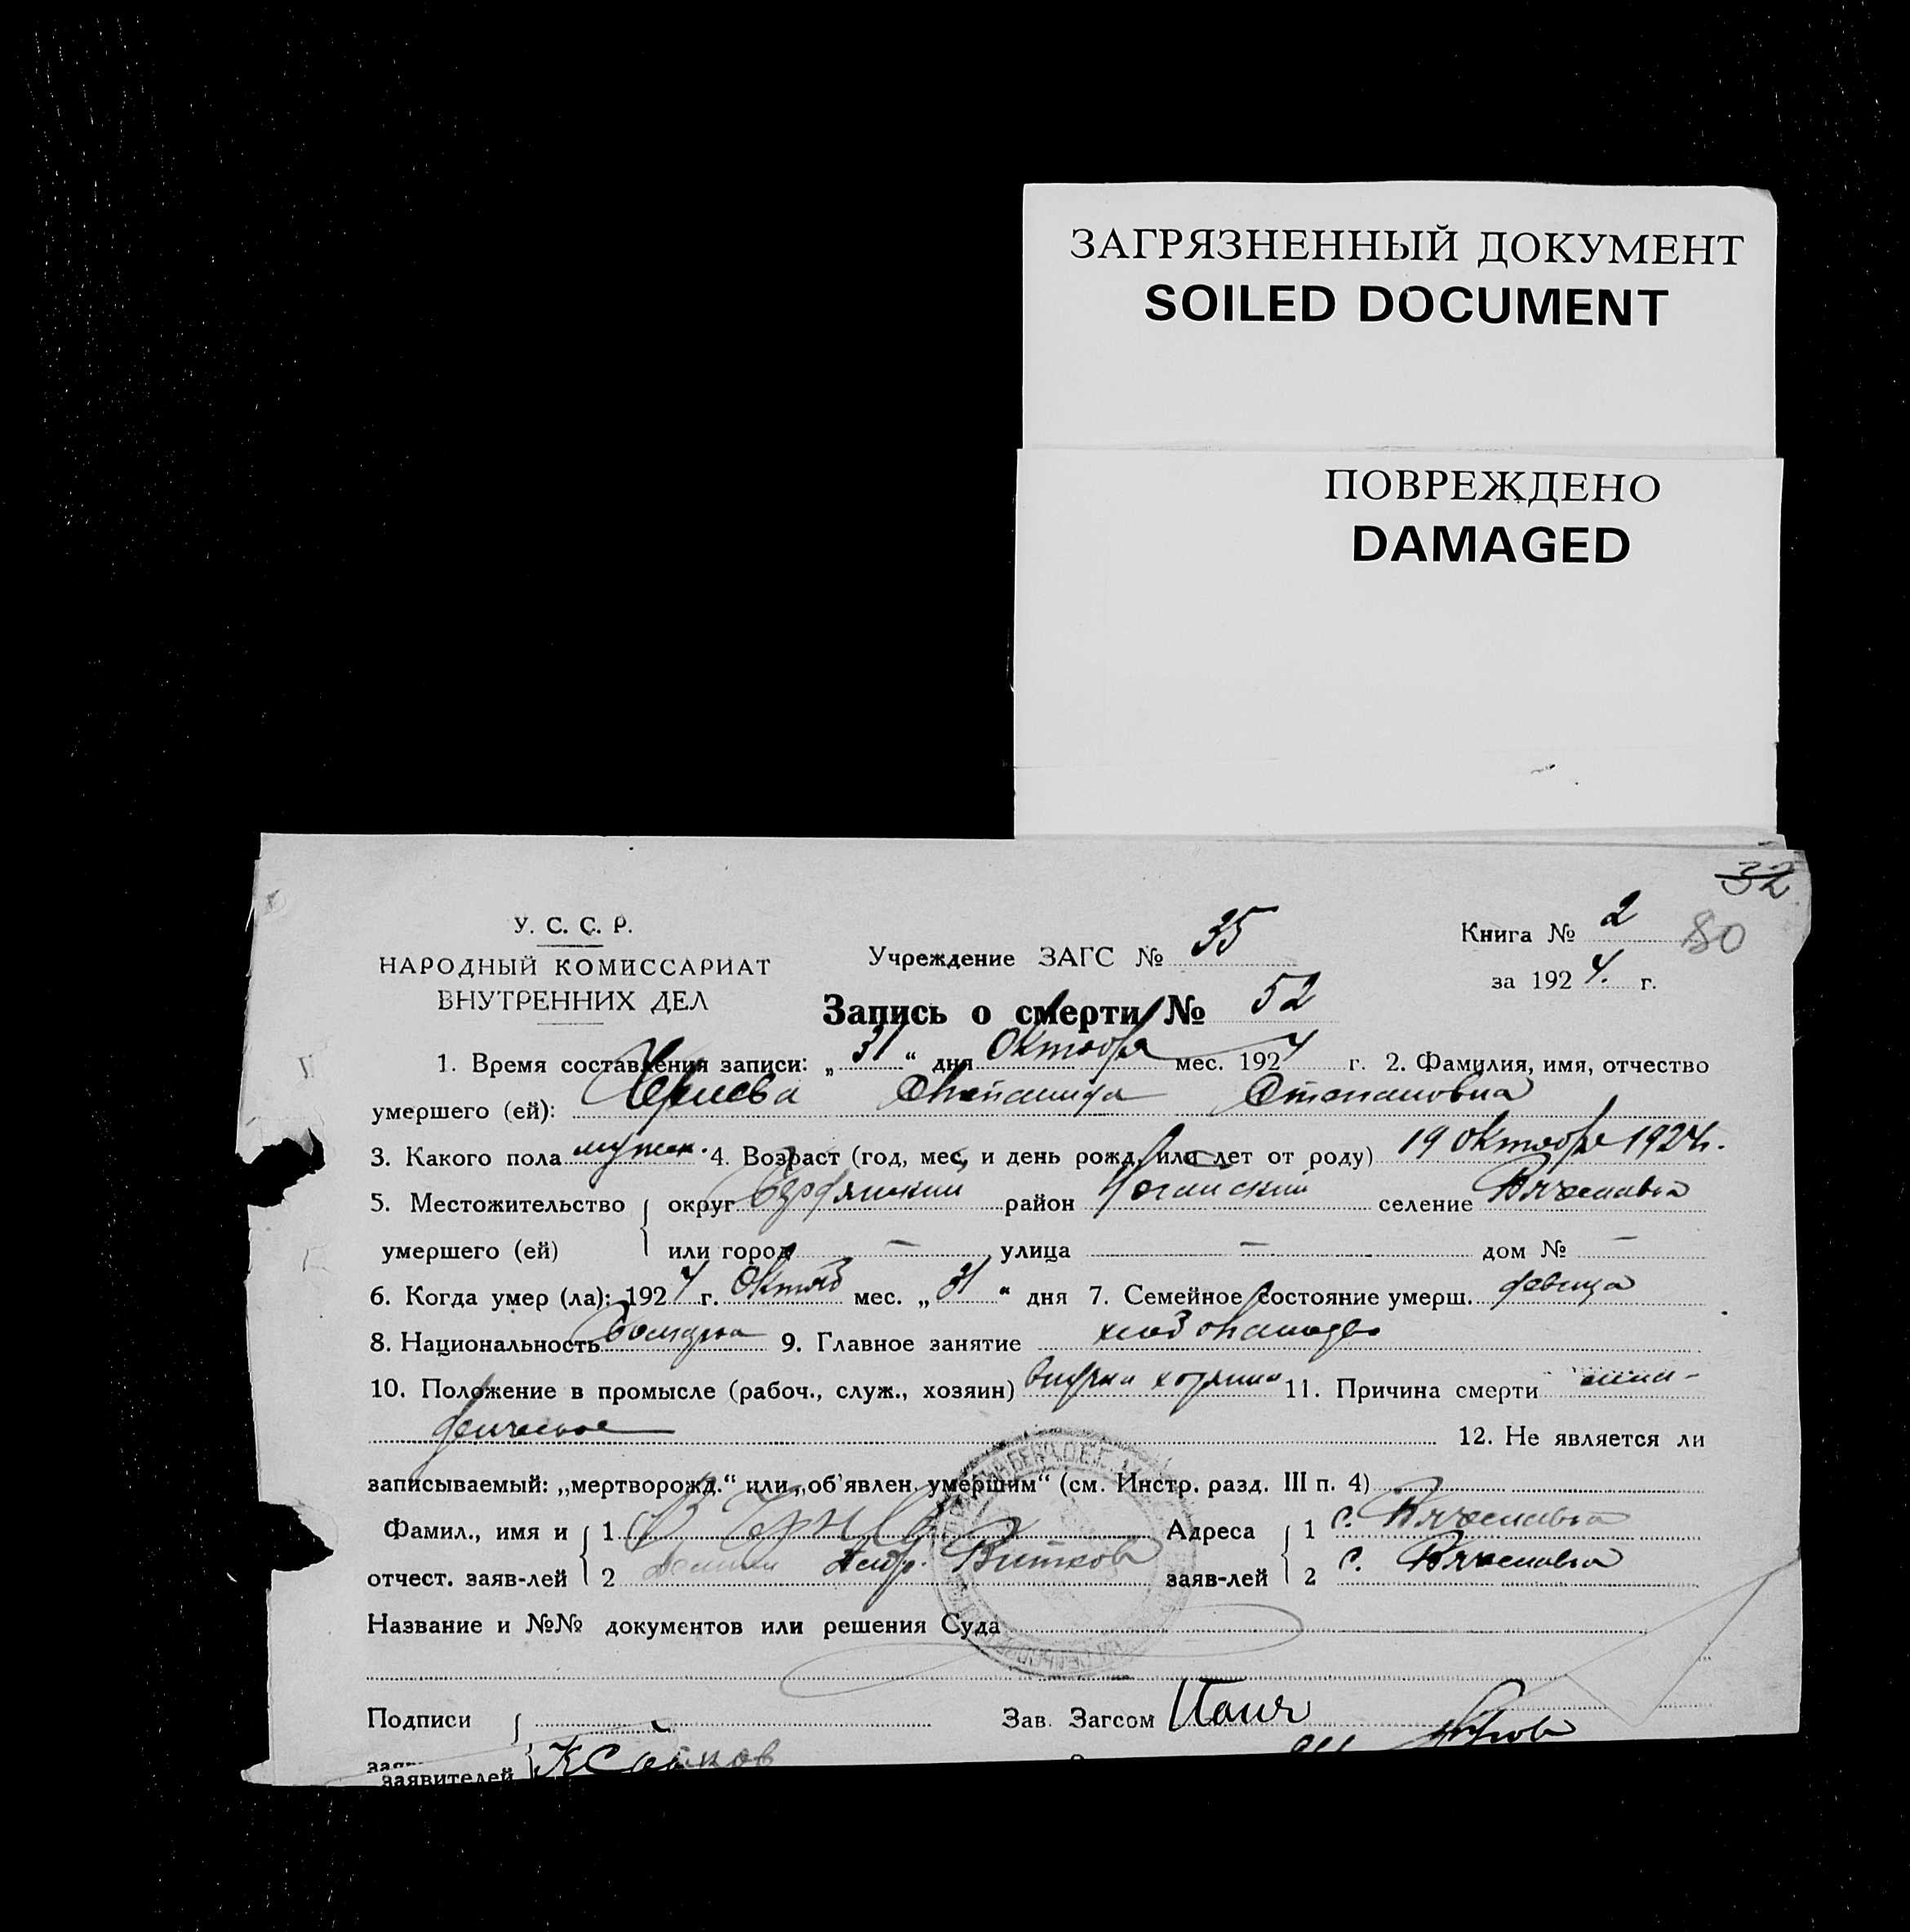 ЗАГРЯЗНЕННЫЙ ДОКУМЕНТ
SOILED DOCUMENT
ПОВРЕЖДЕНО
DAMAGED
32
80
У. С. С. Р.
НАРОДНЫЙ КОМИССАРИАТ
ВНУТРЕННИХ ДЕЛ
Учреждение ЗАГС № 35
Книга № 2
за 1924. г.
Запись о смерти № 52
1. Время составления записи: „31“ дня Октября мес. 1924 г. 2. Фамилия, имя, отчество
умершего (ей): Степановна
3. Какого пола мужск. 4. Возраст (год, мес, и день рожд. или лет от роду) 19 октября 1924г.
5. Местожительство округ Бердянский район Ногайский селение Вячеславка
умершего (ей) или город — улица — дом № —
6. Когда умер (ла): 1924 г. Октяб мес. „31“ дня 7. Семейное состояние умерш. девица
8. Национальность Болгарка 9. Главное занятие
10. Положение в промысле (рабоч., служ., хозяин) 11. Причина смерти
12. Не является ли
записываемый: „мертворожд.“ или „об'явлен. умершим“ (см. Инстр. разд. III п. 4)
Фамил., имя и 1 Адреса 1 с. Вячеславка
отчест. заяв-лей 2 заяв-лей 2 с. Вячеславка
Название и №№ документов или решения Суда
Подписи Зав. Загсом
заявителей